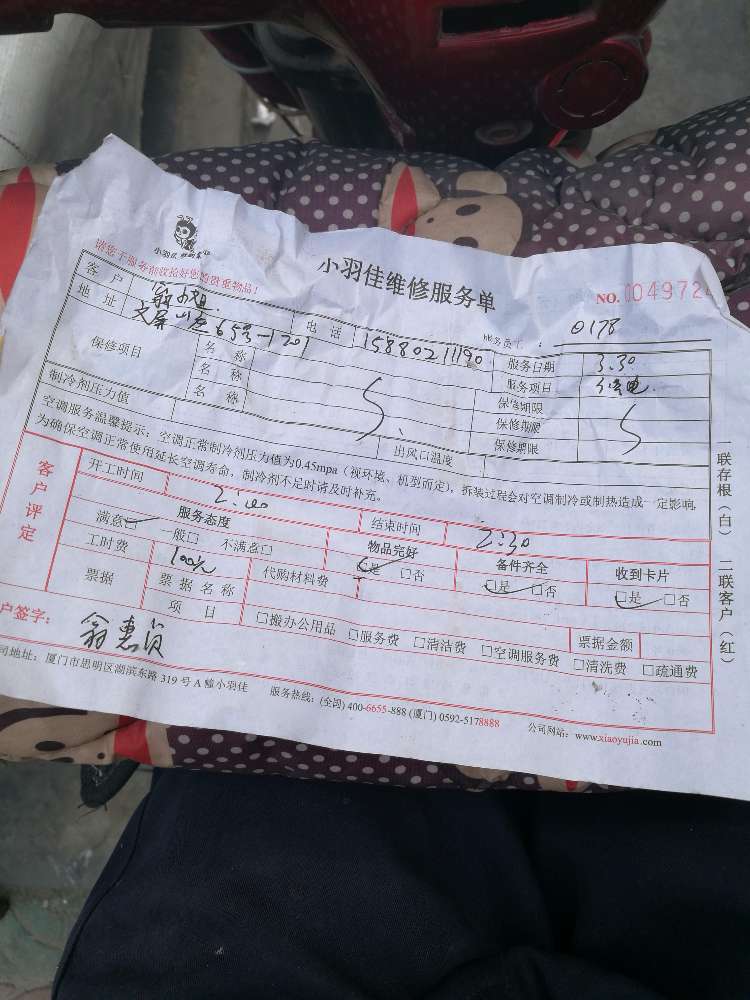 小羽佳 您的家佳
请您于服务前收拾好您的贵重物品！
小羽佳维修服务单
NO. 004972
客户 翁小姐 电话 15880211190 服务员工： 0178
地址 文屏山庄65号-1201 服务日期 3.30
保修项目 名称 服务项目 保修期限
名称 保修期限
名称 保修期限
制冷剂压力值 出风口温度
空调服务温馨提示：空调正常制冷剂压力值为0.45mpa（视环境、机型而定），拆装过程会对空调制冷或制热造成一定影响，
为确保空调正常使用延长空调寿命，制冷剂不足时请及时补充。
客户评定
开工时间 2:00 结束时间 2:30
服务态度 物品完好 备件齐全 收到卡片
满意□ 一般□ 不满意□ □是 □否 □是 □否 □是 □否
工时费 100% 代购材料费
票据 票据名称 票据金额
项目 □搬办公用品 □服务费 □清洁费 □空调服务费 □清洗费 □疏通费
户签字： 翁惠贞
司地址：厦门市思明区湖滨东路 319 号 A 幢小羽佳 服务热线：(全国) 400-6655-888 (厦门) 0592-5178888 公司网站：www.xiaoyujia.com
一联存根（白） 二联客户（红）